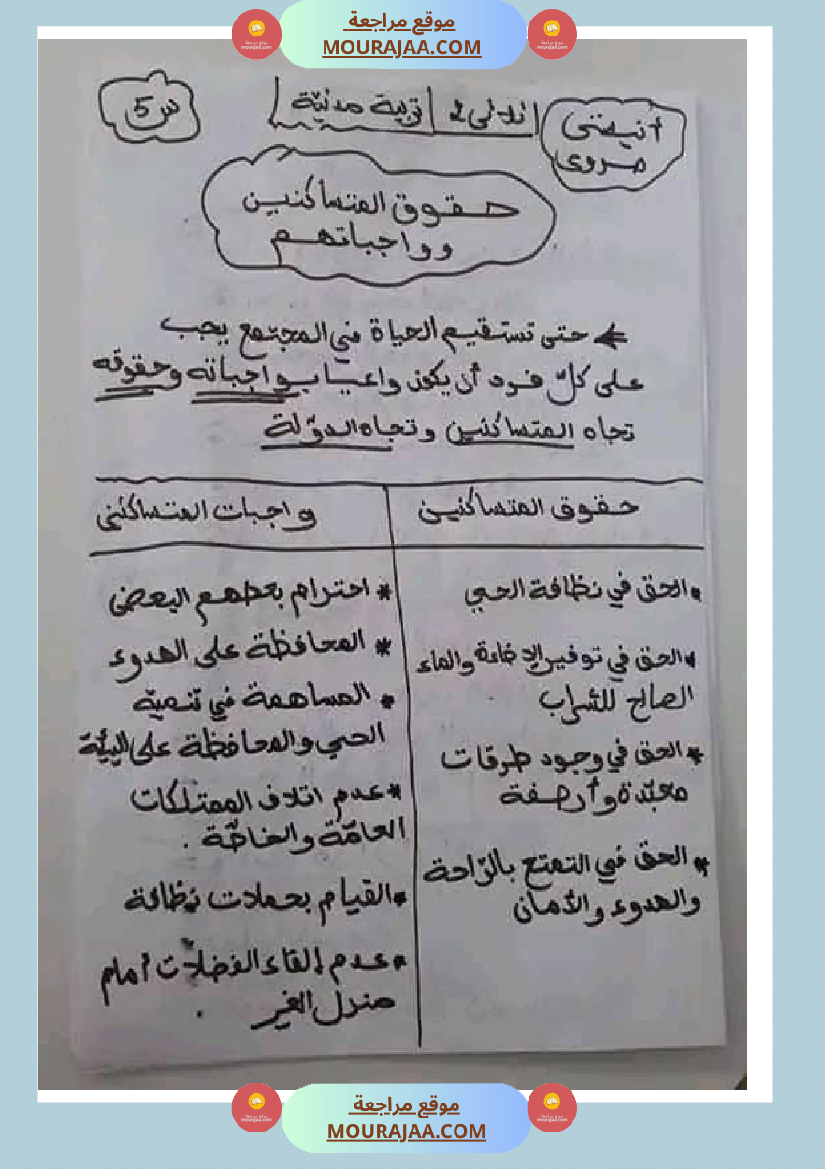 موقع مراجعة
MOURAJAA.COM
أنيستي
مروى
الثلاثي 2
تربية مدنيّة
س5
حقوق المتساكنين
وواجباتهم
حتى تستقيم الحياة في المجتمع يجب
على كلّ فرد أن يكون واعيا بواجباته وحقوقه
تجاه المتساكنين وتجاه الدّولة
حقوق المتساكنين
واجبات المتساكني
* الحق في نظافة الحي
* الحق في توفير الإضاءة والماء
الصالح للشراب
* الحق في وجود طرقات
معبّدة وأرصفة
* الحق في التمتع بالرّاحة
والهدوء والأمان
* احترام بعضهم البعض
* المحافظة على الهدوء
* المساهمة في تنمية
الحي والمحافظة على البيئة
* عدم اتلاف الممتلكات
العامّة والخاصّة .
* القيام بحملات نظافة
* عدم إلقاء الفضلات أمام
منزل الغير .
موقع مراجعة
MOURAJAA.COM